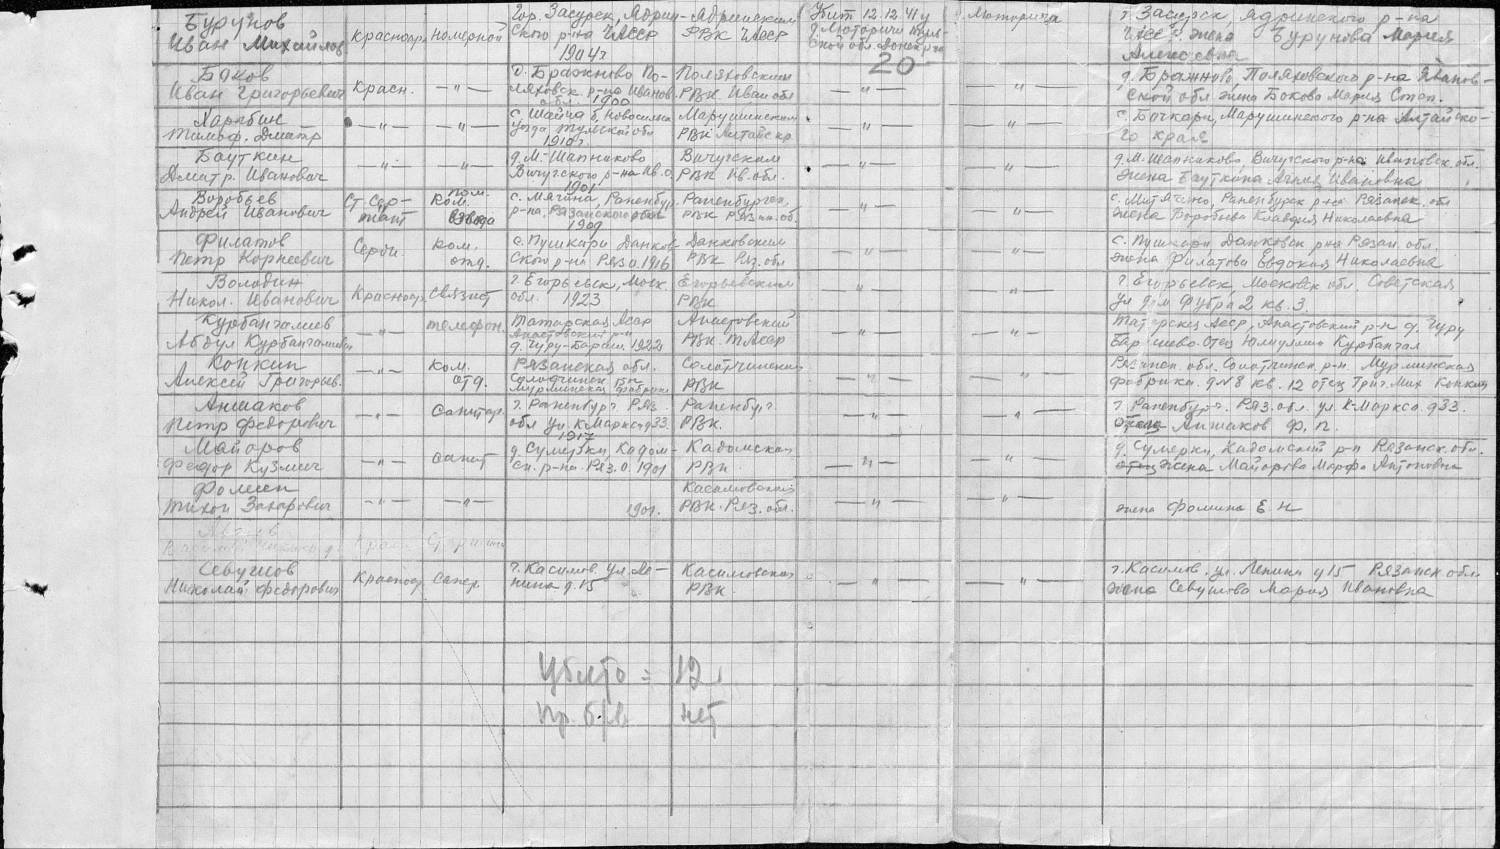 Бурунов
Иван Михайлов
Красноар.
Номерной
Гор. Засурск, Ядрин-
ского р-на ЧАССР
1904 г
Ядринским
РВК ЧАССР
Убит 12.12.41 г
д. Люторичи Туль-
ской обл.
20
Люторичи
г. Засурск, Ядринского р-на
жена Бурунова Мария
Алексеевна
Баков
Иван Григорьевич
Красн.
— " —
д. Бражново По-
ляховск. р-на Иванов.
обл. 1900
Поляховским
РВК Иван обл
— " —
— " —
д. Бражново, Поляховского р-на Иванов-
ской обл жена Бокова Мария Степ.
Харабин
Тимоф. Дмитр
— " —
— " —
с. Шайча б. Новосильск
уезда Тульской обл
1910 г.
Марушинским
РВК Алтайск кр
— " —
— " —
с. Бочкари, Марушинского р-на Алтайско-
го края
Бауткин
Дмитр. Иванович
— " —
— " —
д. М-Шапниково
Вичугского р-на Ив. о.
1901
Вичугским
РВК Ив. обл.
— " —
— " —
д. М. Шапниково, Вичугского р-на Ивановск. обл.
жена Бауткина Ивановна
Воробьев
Андрей Иванович
Ст. Сер-
жант
пом.
ком.
взвода
с. Мягина, Раненбур.
р-на, Рязанской обл
1909
Раненбургск.
РВК Ряз. об.
— " —
— " —
с. Митягино, Раненбурск р-на Рязанск. обл
жена Воробьева Клавдия Николаевна
Филатов
Петр Корнеевич
Серж.
ком.
отд.
с. Пушкари Данков-
ского р-на Ряз о. 1916
Данковским
РВК Ряз. обл
— " —
— " —
с. Пушкари Данковск р-на Рязан. обл.
жена Филатова Евдокия Николаевна
Володин
Никол. Иванович
Красноар.
Связист
г. Егорьевск, Моск
обл. 1923
Егорьевским
РВК
— " —
— " —
г. Егорьевск, Московск обл. Советская
ул дом 2 кв. 3.
Курбангалиев
Абдул Курбангалиевич
— " —
телефон.
Татарская Асср
Апастовский р-н
д. Чуру-Бараш. 1922
Апастовский
РВК. ТАсср
— " —
— " —
Татарская Асср, Апастовский р-н д. Чуру
отец Курбангал
Конкин
Алексей Григорьев.
— " —
ком.
отд.
Рязанская обл.
Солотчинск р-н
Мурминская фабрика
Солотчинский
РВК
— " —
— " —
Рязанск. обл. Солотчинск р-н. Мурминская
фабрика. д № 8 кв. 12 отец Григ. Мих Конкин
Аншаков
Петр Федорович
— " —
Санитар.
г. Раненбург. Ряз
обл ул. К-Маркса д33.
1917
Раненбург.
РВК.
— " —
— " —
г. Раненбург. Ряз. обл. ул. К-Маркса. д33.
отец Аншаков Ф. П.
Майоров
Федор Кузмич
— " —
санит
д. Сумерки, Кадом-
ск. р-на. Ряз. о. 1901
Кадомским
РВК.
— " —
— " —
д. Сумерки, Кадомский р-н Рязанск. обл.
отец жена Майорова Марфа Антоновна
Фомин
Тихон Захарович
— " —
— " —
1901.
Касимовский
РВК. Ряз. обл.
— " —
— " —
жена Фомина Е. Н
Севушов
Николай Федорович
Красноар
Сапер.
г. Касимов. ул. Ле-
нина д. 15
Касимовским
РВК.
— " —
— " —
г. Касимов. ул. Ленина д 15 Рязанск обл.
жена Севушова Мария Ивановна
Убито = 12
Пр. б/в нет